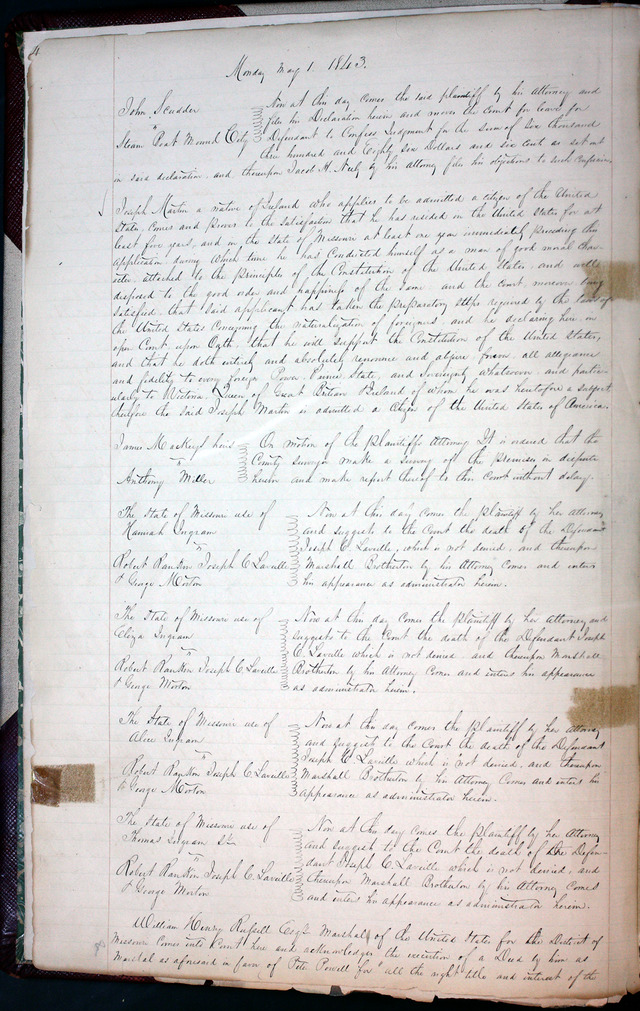 4
Monday May 1. 1843.
John Scudder
vs
Steam Boat Mound City
Now at this day comes the said plaintiff by his Attorney and
files his Declaration herein and moves the court for leave for
Defendant to Confess Judgment for the sum of six thousand
three hundred and Eighty six Dollars and six cents as set out
in said declaration. and thereupon Jacob H. Neely by his attorney files his objections to such Confession
Joseph Martin a native of Ireland who applies to be admitted a citizen of the United
States, comes and proves to the satisfaction that he has resided in the United States for at
least five years, and in the State of Missouri at least one year immediately preceeding this
application. during which time he has Conducted himself as a man of good moral char-
acter. attached to the principles of the Constitution of the United States. and well
disposed to the good order and happiness of the same and the court moreover being
satisfied that said applicant has taken the preparatory steps required by the laws of
the United States Concerning the naturalization of foreigners, and he declaring here in
open Court upon Oath, that he will support the Constitution of the United States,
and that he doth entirely and absolutely renounce and abjure forever all allegiance
and fidelity to every foreign Power. Prince State, and Sovereignty whatsoever and partic-
ularly to Victoria Queen of Great Britain & Ireland of whom he was heretofore a subject
therefore the said Joseph Martin is admitted a Citizen of the United States of America.
James Mackeys heirs
vs
Anthony Miller
On motion of the plaintiffs Attorney It is ordered that the
County surveyor make a survey of the premises in dispute
herein and make report thereof to this Court without delay.
The State of Missouri use of
Hannah Ingram
vs
Robert Rankin Joseph C Laville
& George Morton
Now at this day comes the plaintiff by her Attorney
and suggest to the Court the death of the Defendant
Joseph C. Laville, which is not denied, and thereupon
Marshall Brotherton by his Attorney Comes and enters
his appearance as administrator herein.
The State of Missouri use of
Eliza Ingram
vs
Robert Rankin Joseph C Laville
& George Morton
Now at this day comes the plaintiff by her Attorney and
suggests to the Court the death of the Defendant Joseph
C. Laville which is not denied. and thereupon Marshall
Brotherton by his Attorney Comes and enters his appearance
as administrator herein.
The State of Missouri use of
Alice Ingram
vs
Robert Rankin Joseph C Laville
& George Morton
Now at this day comes the plaintiff by her Attorney
and suggests to the Court the death of the Defendant
Joseph C. Laville which is not denied. and thereupon
Marshall Brotherton by his Attorney Comes and enters his
appearance as administrator herein.
The State of Missouri use of
Thomas Ingram
vs
Robert Rankin Joseph C. Laville
& George Morton
Now at this day comes the plaintiff by her Attorney
and suggest to the Court the death of the Defen-
dant Joseph C. Laville which is not denied, and
thereupon Marshall Brotherton by his Attorney Comes
and enters his appearance as administrator herein.
William Henry Russell Esqr. Marshall of the United States for the District of
Missouri Comes into Court here and acknowledges the execution of a Deed by him as
Marshal as aforesaid in favor of Peter Powell for "all the right title and interest of the